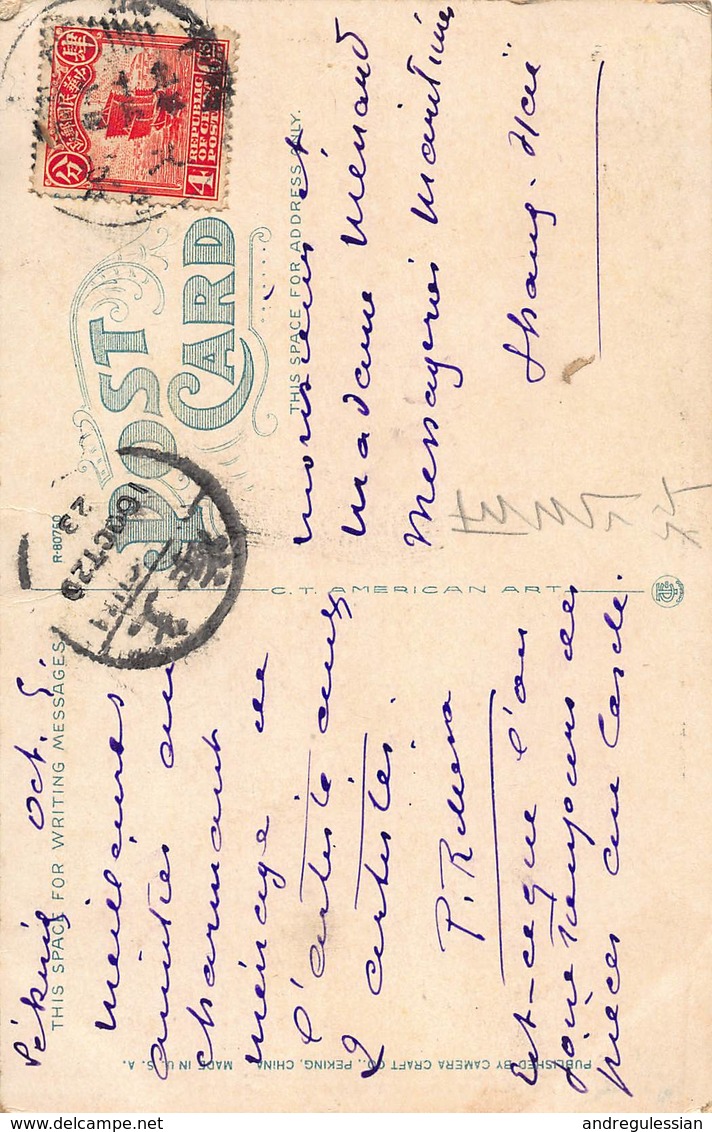 POST CARD
R-80750
THIS SPACE FOR WRITING MESSAGES
THIS SPACE FOR ADDRESS ONLY.
REPUBLIC
OF CHINA
POST
4
分
16 OCT 25
23
Pékin Oct.
Meilleures
amitiés au
charmant
ménage de
l'artiste aux
2 artistes.
Est-ce que l'on
joue toujours des
pièces au
Monsieur et
Madame Ménard
Messageries Maritimes
Shang-Haï
C.T. AMERICAN ART
PUBLISHED BY CAMERA CRAFT CO., PEKING, CHINA
MADE IN U.S.A.
andregulessian